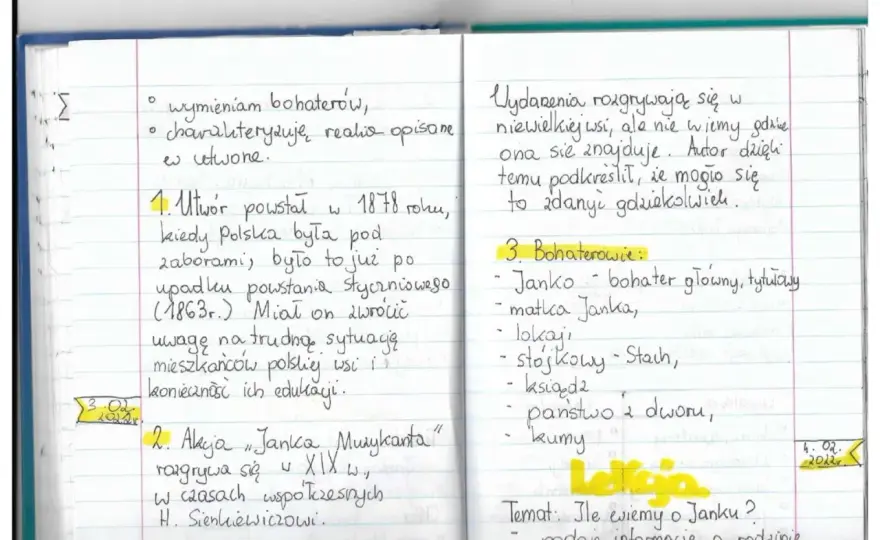 • wymieniam bohaterów,
• charakteryzuję realia opisane
w utworze.
1. Utwór powstał w 1878 roku,
kiedy Polska była pod
zaborami, było to już po
upadku powstania styczniowego
(1863r.) Miał on zwrócić
uwagę na trudną sytuację
mieszkańców polskiej wsi i
konieczność ich edukacji.
3.02.
2022r.
2. Akcja „Janka Muzykanta"
rozgrywa się w XIX w.,
w czasach współczesnych
H. Sienkiewiczowi.
Wydarzenia rozgrywają się w
niewielkiej wsi, ale nie wiemy gdzie
ona się znajduje. Autor dzięki
temu podkreślił, że mogło się
to zdarzyć gdziekolwiek.
3. Bohaterowie:
- Janko - bohater główny, tytułowy
- matka Janka,
- lokaj,
- stójkowy - Stach,
- ksiądz
- państwo z dworu,
- kumy
4.02.
2022r.
Lekcja
Temat: Ile wiemy o Janku?
- podaję informacje o rodzinie